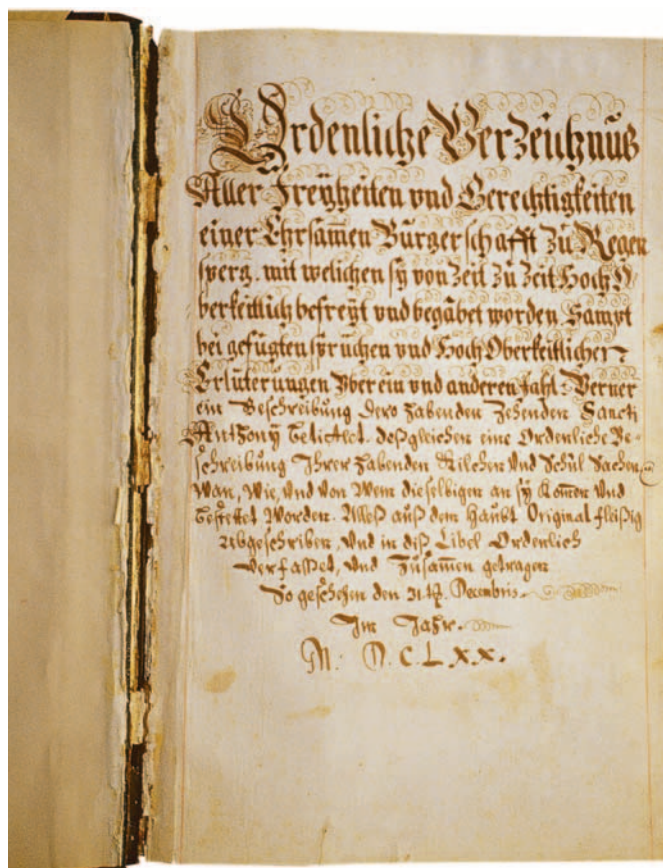 Ordenliche Verzeichnus
Aller Freyheiten vnd Gerechtigkeiten
einer Ehrsammen Bürgerschafft zu Regen
sperg. mit welichen sy von Zeit zu Zeit Hoch O
berkeitlich befreyt vnd begabet worden. Sampt
bei gefügten sprüchen vnd Hoch Oberkeitlicher
Erlüterungen Vber ein vnd anderen fahl. Verner
ein Beschreibung dero habenden Zehenden Sancti
Anthony. Deßgleichen eine Ordenliche Be-
schreibung Ihrer habenden Kilchen Vnd Schul Sachen
Wan, Wie, Vnd Von Wem dieselbigen an sy Komen Vnd
Worden. Alleß auß dem Haubt Original fleißig
Abgeschriben, Vnd in diß Libel Ordenlich
Verfasset, Vnd Zusammen getragen
So geschehen den Decembris.
Im Jahr.
M. D. C. L X X.